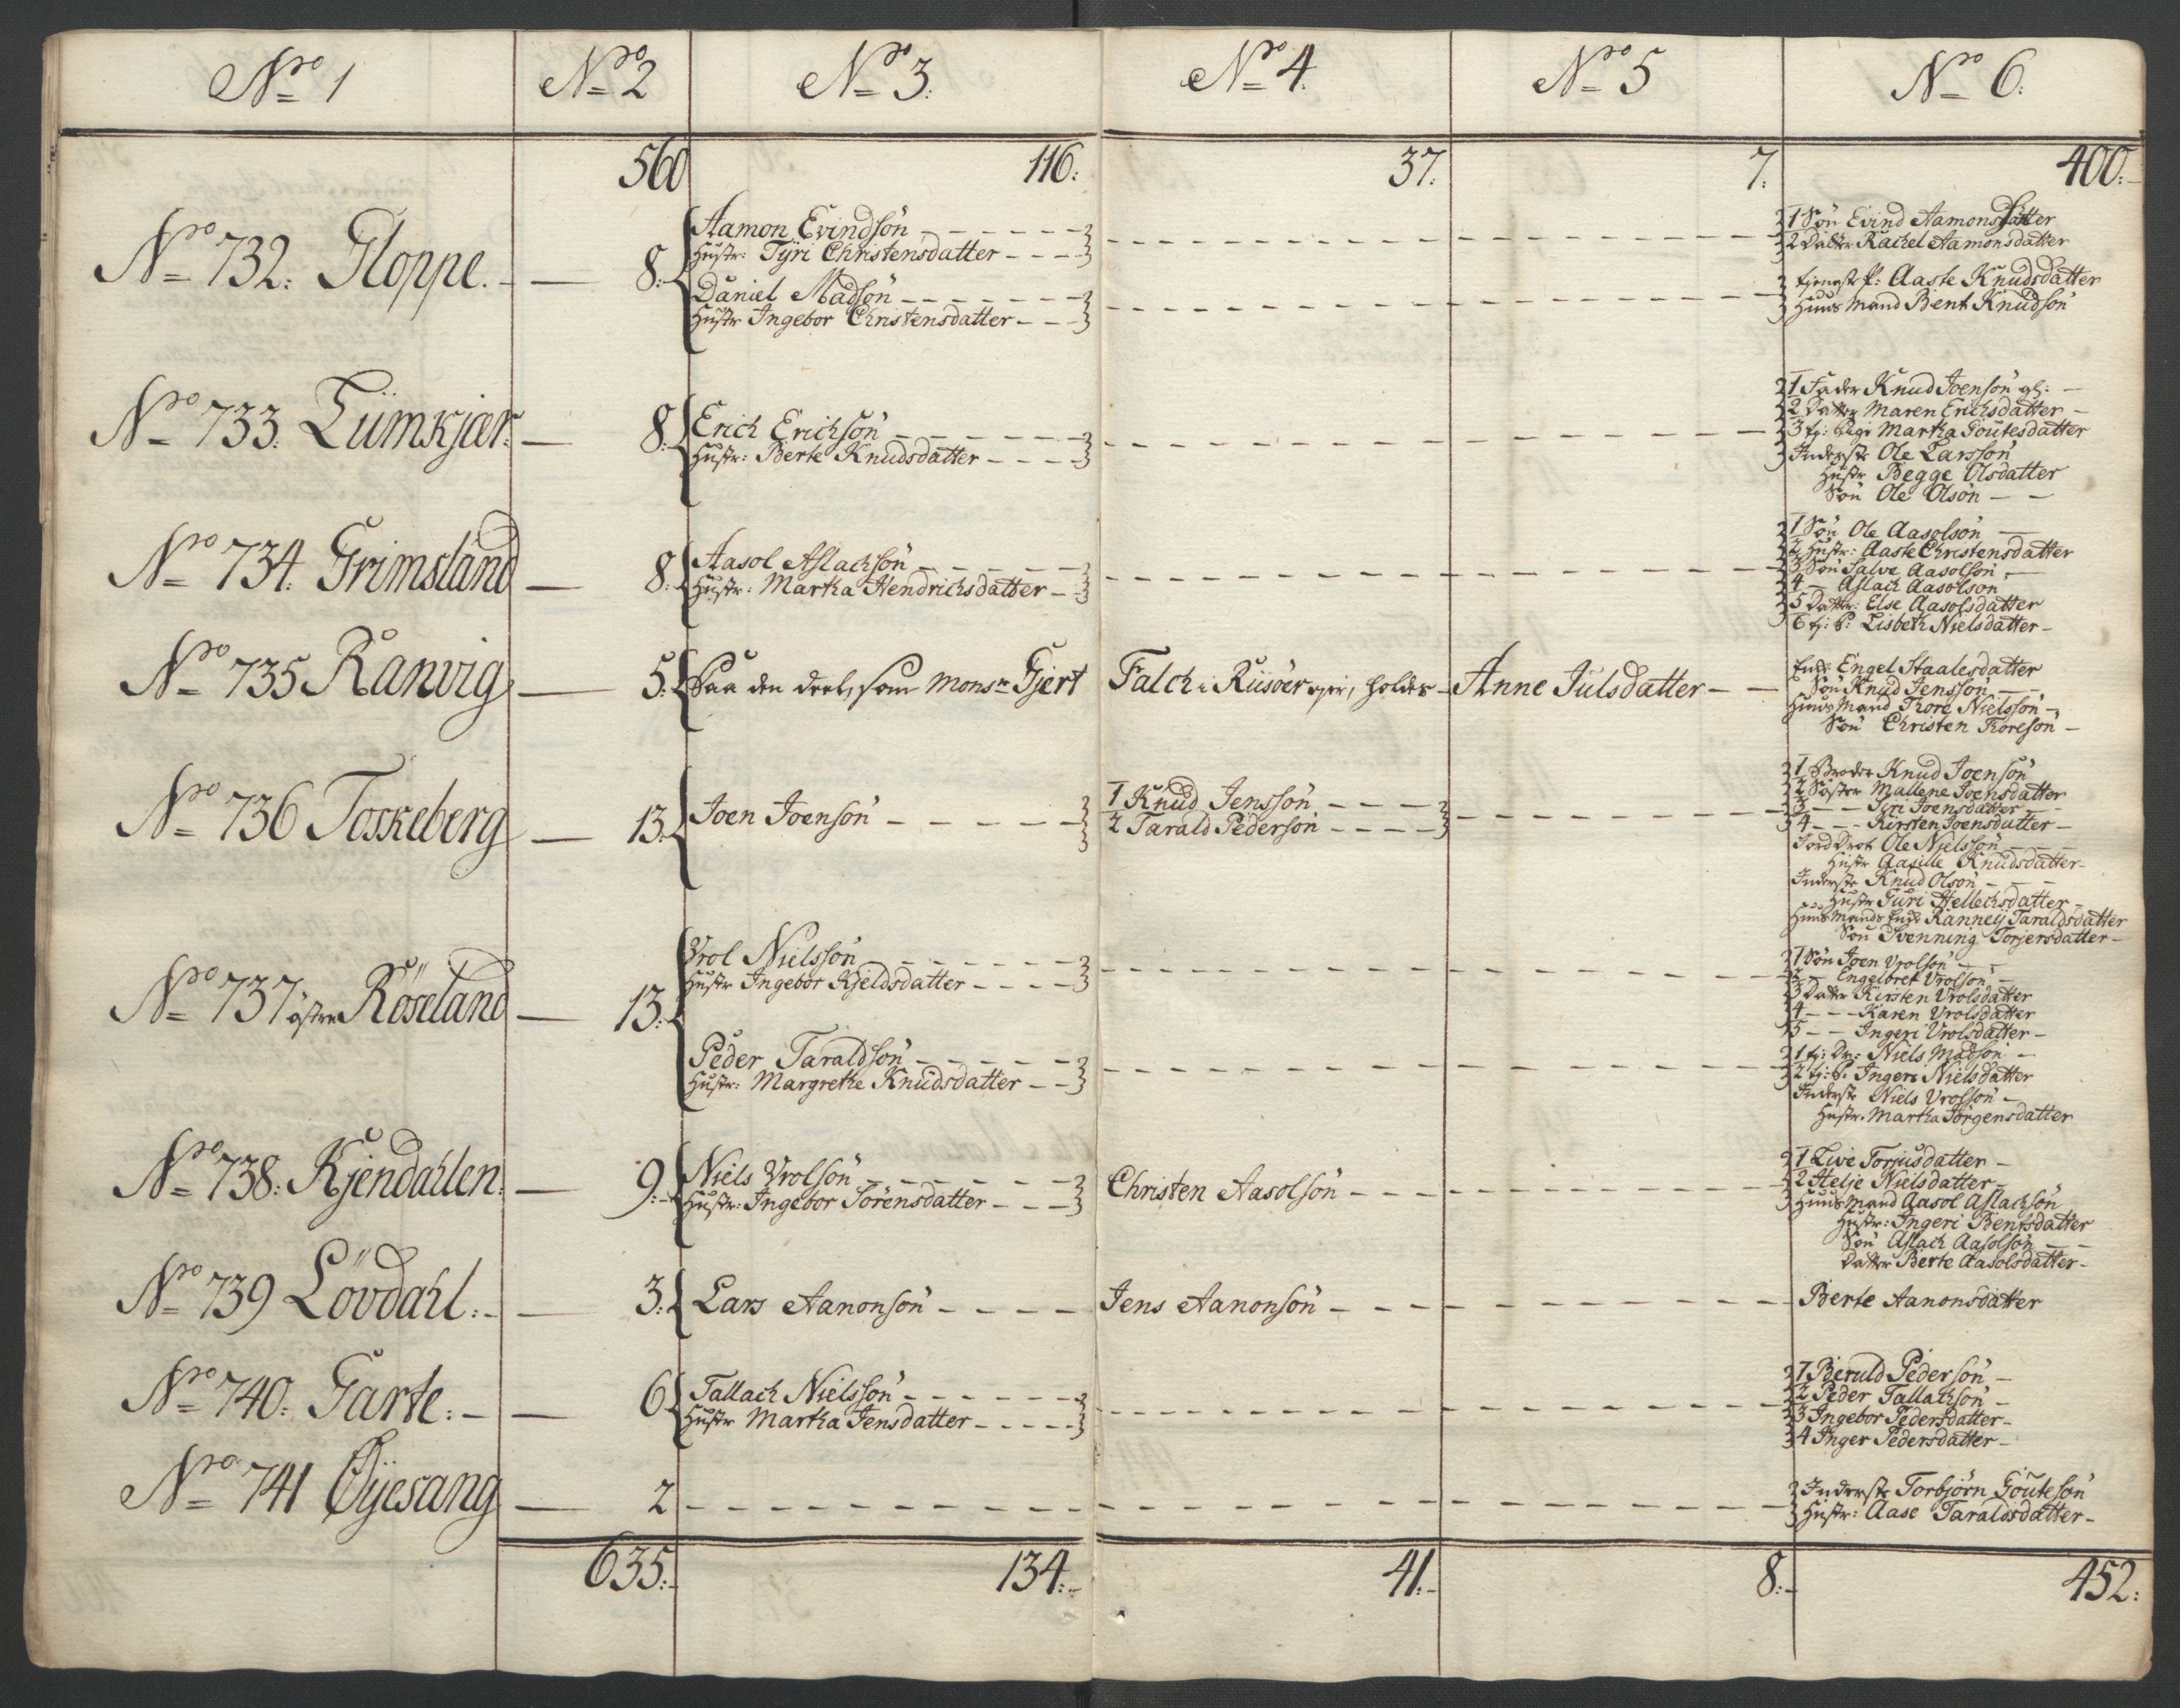 Nro 1
Nro 2
Nro 3.
Nro 4.
Nro 5
Nro 6.
560
116:
37.
7.
400:
Nro 732: Gloppe.
8:
Aamon Evindsön
Hustr: Tÿri Christensdatter
Daniel Madsön
Hustr Ingebor Christensdatter
1 Sön Evind Aamons
2 Datter Rachel Aamonsdatter
tjenestp: Aaste Knudsdatter
Huus Mand Bent Knudsön
Nro 733: Lümkjær
8.
Erich Erichsön
Hustr: Berte Knudsdatter
1 Fader Knud Joensön gl:
2 Datter Maren Erichsdatter
3 tj: Pige Martha Goutesdatter
Inderste Ole Larssön
Hustr Begge Olsdatter
Sön Ole Olsön
Nro 734. Grimsland
8.
Aasol Aslachsön
Hustr: Martha Hendrichsdatter
1 Sön Ole Aasolsön
2 Hustr: Aaste Christensdatter
3 Sön Salve Aasolsön
4 — Aslach Aasolson
5 Datter: Else Aasolsdatter
6 tj: P: Lisbeth Nielsdatter
Nro 735 Ranvig
5.
Paa den deel, som Monsr Gjert Falch i Riisöer ejer, holdes
Anne Julsdatter
Enke: Engel Staalesdatter
Sön Knud Jenssön
Huus Mand Thore Nielssön
Sön Christen Thoresön
Nro 736 Toskeberg
13.
Joen Joensön
1 Knud Jenssön
2 Tarald Pedersön
1 Broder Knud Joensön
2 Söster Mallene Joensdatter
3 — — Siri Joensdatter
4 — — Kirsten Joensdatter
Jord Drot Ole Nielssön
Hustr Aasille Knudsdatter
Inderste Knud Olson
Hustr Turi Hellechsdatter
Huus Mands Enke Ranneÿ Taraldsdatter
Sön Svenning Torjersdatter
Nro 737 östre Röseland
13.
Vrol Nielssön
Hustr Ingebor Kjeldsdatter
Peder Taraldsön
Hustr: Margrethe Knudsdatter
1 Sön Joen Vrolsön
2 — Engelbret Vrolsön
3 Datter Kirsten Vrolsdatter
4 — — Karen Vrolsdatter
5 — — Ingeri Vrolsdatter
1 tj: Dr: Niels Madsön
2 tj: P. Ingeri Nielsdatter
Inderste Niels Vrolsön
Hustr. Martha Jörgensdatter
Nro 738: Kjendahlen
9.
Niels Vrolsön
Hustr: Ingebor Sörensdatter
Christen Aasolsön
1 Live Torjusdatter
2 Helje Nielsdatter
Huus Mand Aasol Aslachsön
Hustr: Ingeri Bentsdatter
Sön Aslach Aasolsön
Datter Berte Aasolsdatter
Nro 739 Lövdahl
3.
Lars Aanonsön
Jens Aanonsön
Berte Aanonsdatter
Nro 740. Garte
6
Tallach Nielssön
Hustr Martha Jensdatter
1 Beruld Pedersön
2 Peder Tallachsön
3 Ingebor Pedersdatter
4 Inger Pedersdatter
Nro 741 Øÿesang
2
Inderste Torbjörn Göutesön
Hustr: Aase Taraldsdatter
635.
134.
41.
8.
452: